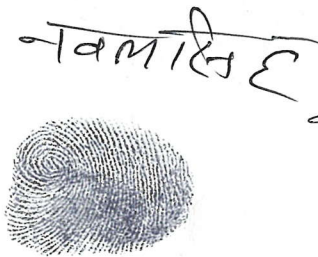 नवलसिंह